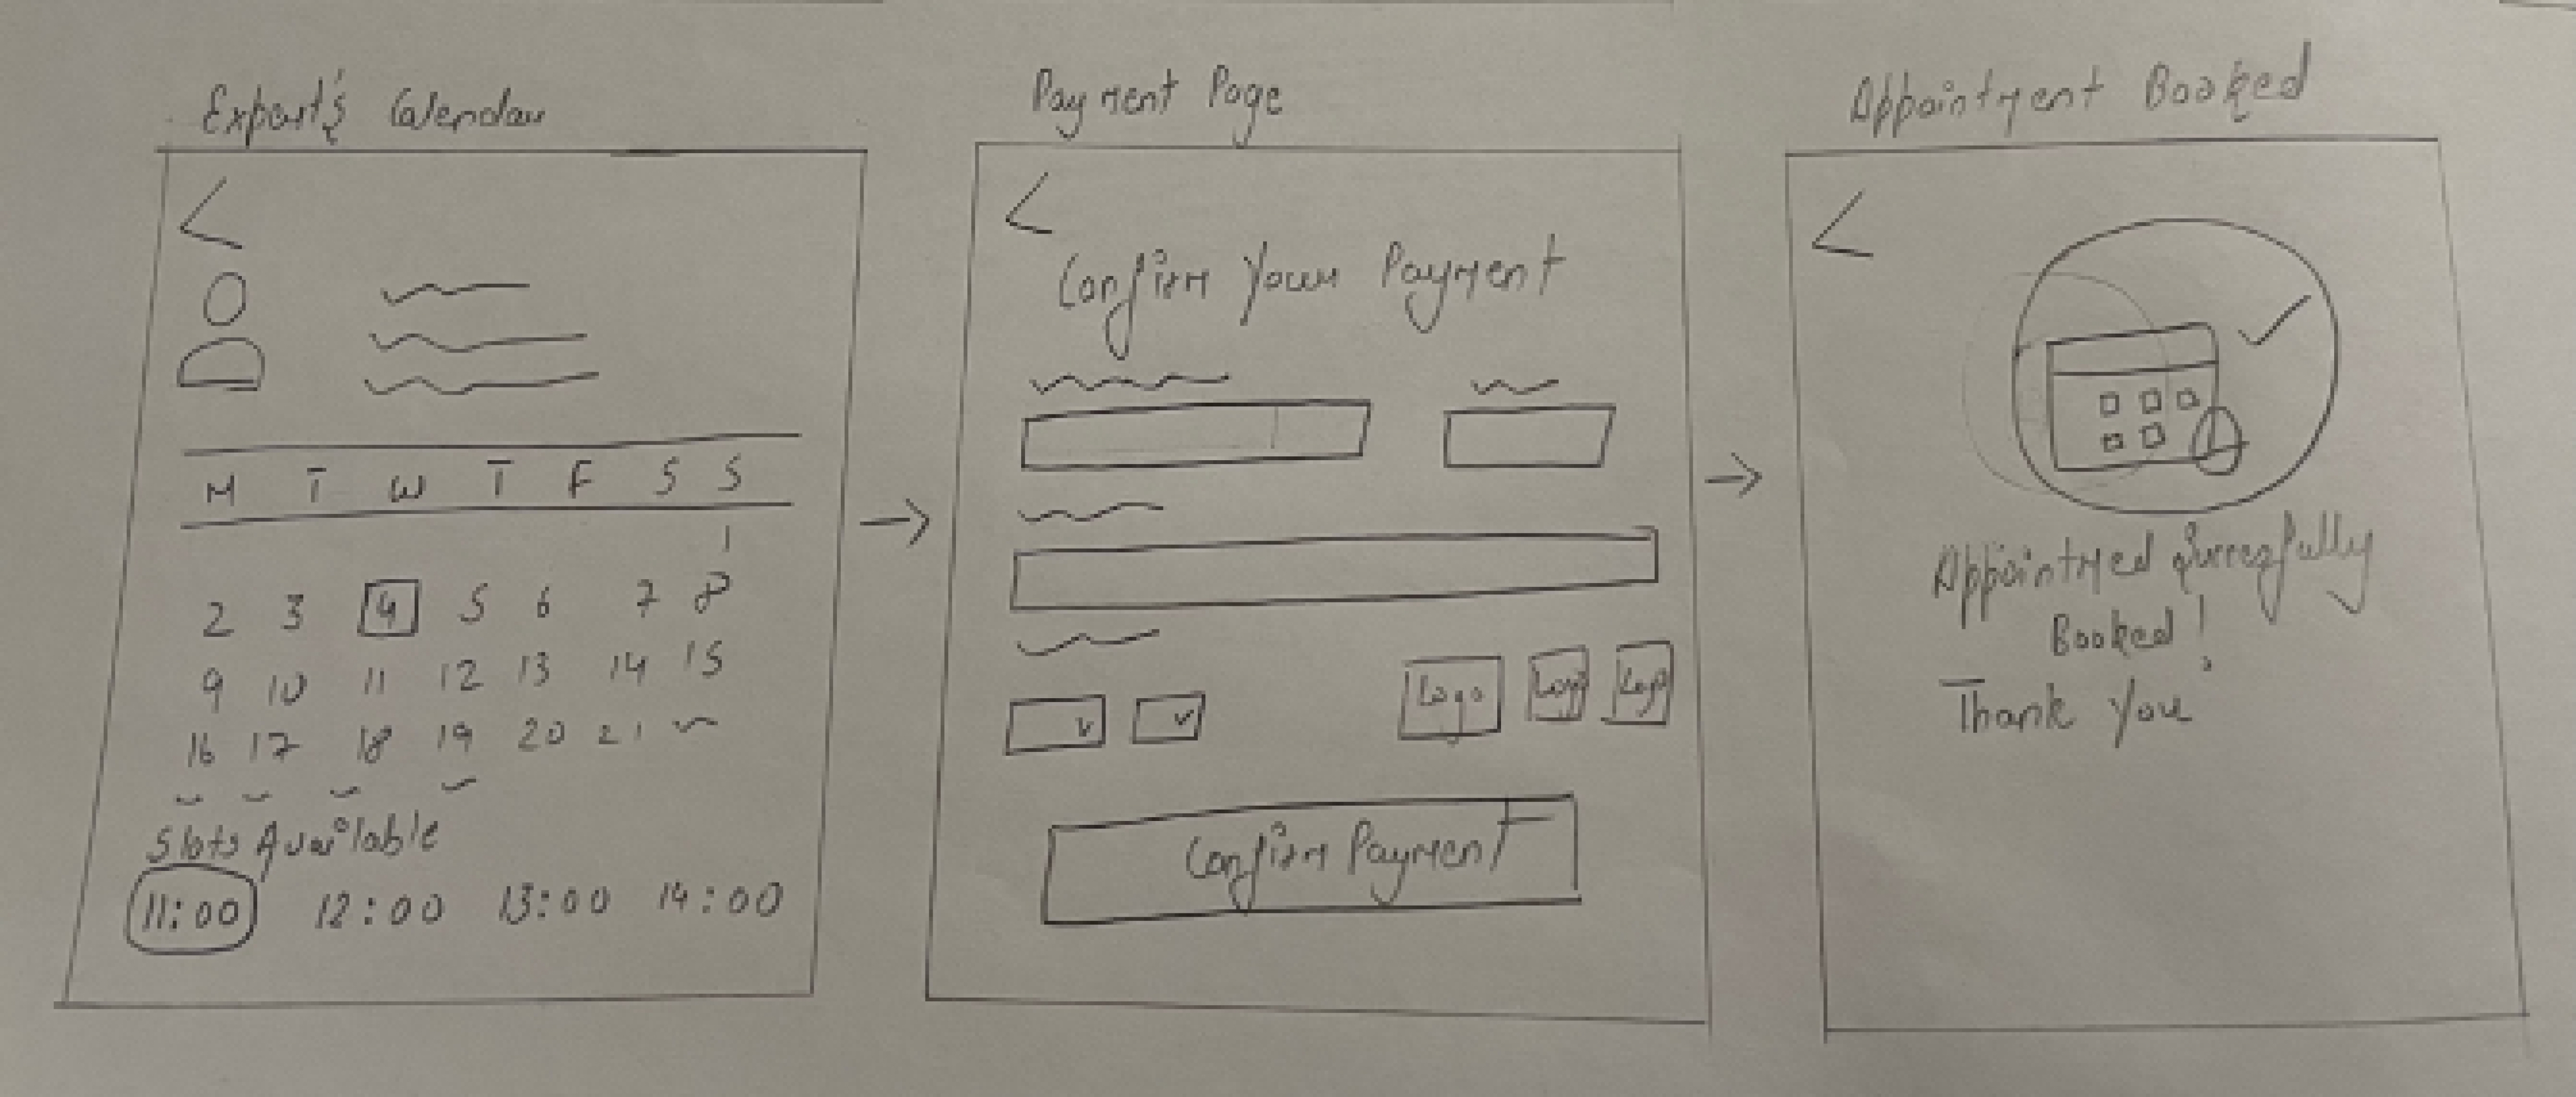 Expert's Calendar
<
M T W T F S S
1
2 3 4 5 6 7 8
9 10 11 12 13 14 15
16 17 18 19 20 21
Slots Available
11:00 12:00 13:00 14:00
Payment Page
<
Confirm Your Payment
Logo Logo Logo
Confirm Payment
Appointment Booked
<
Appointmed Sucessfully
Booked!
Thank You